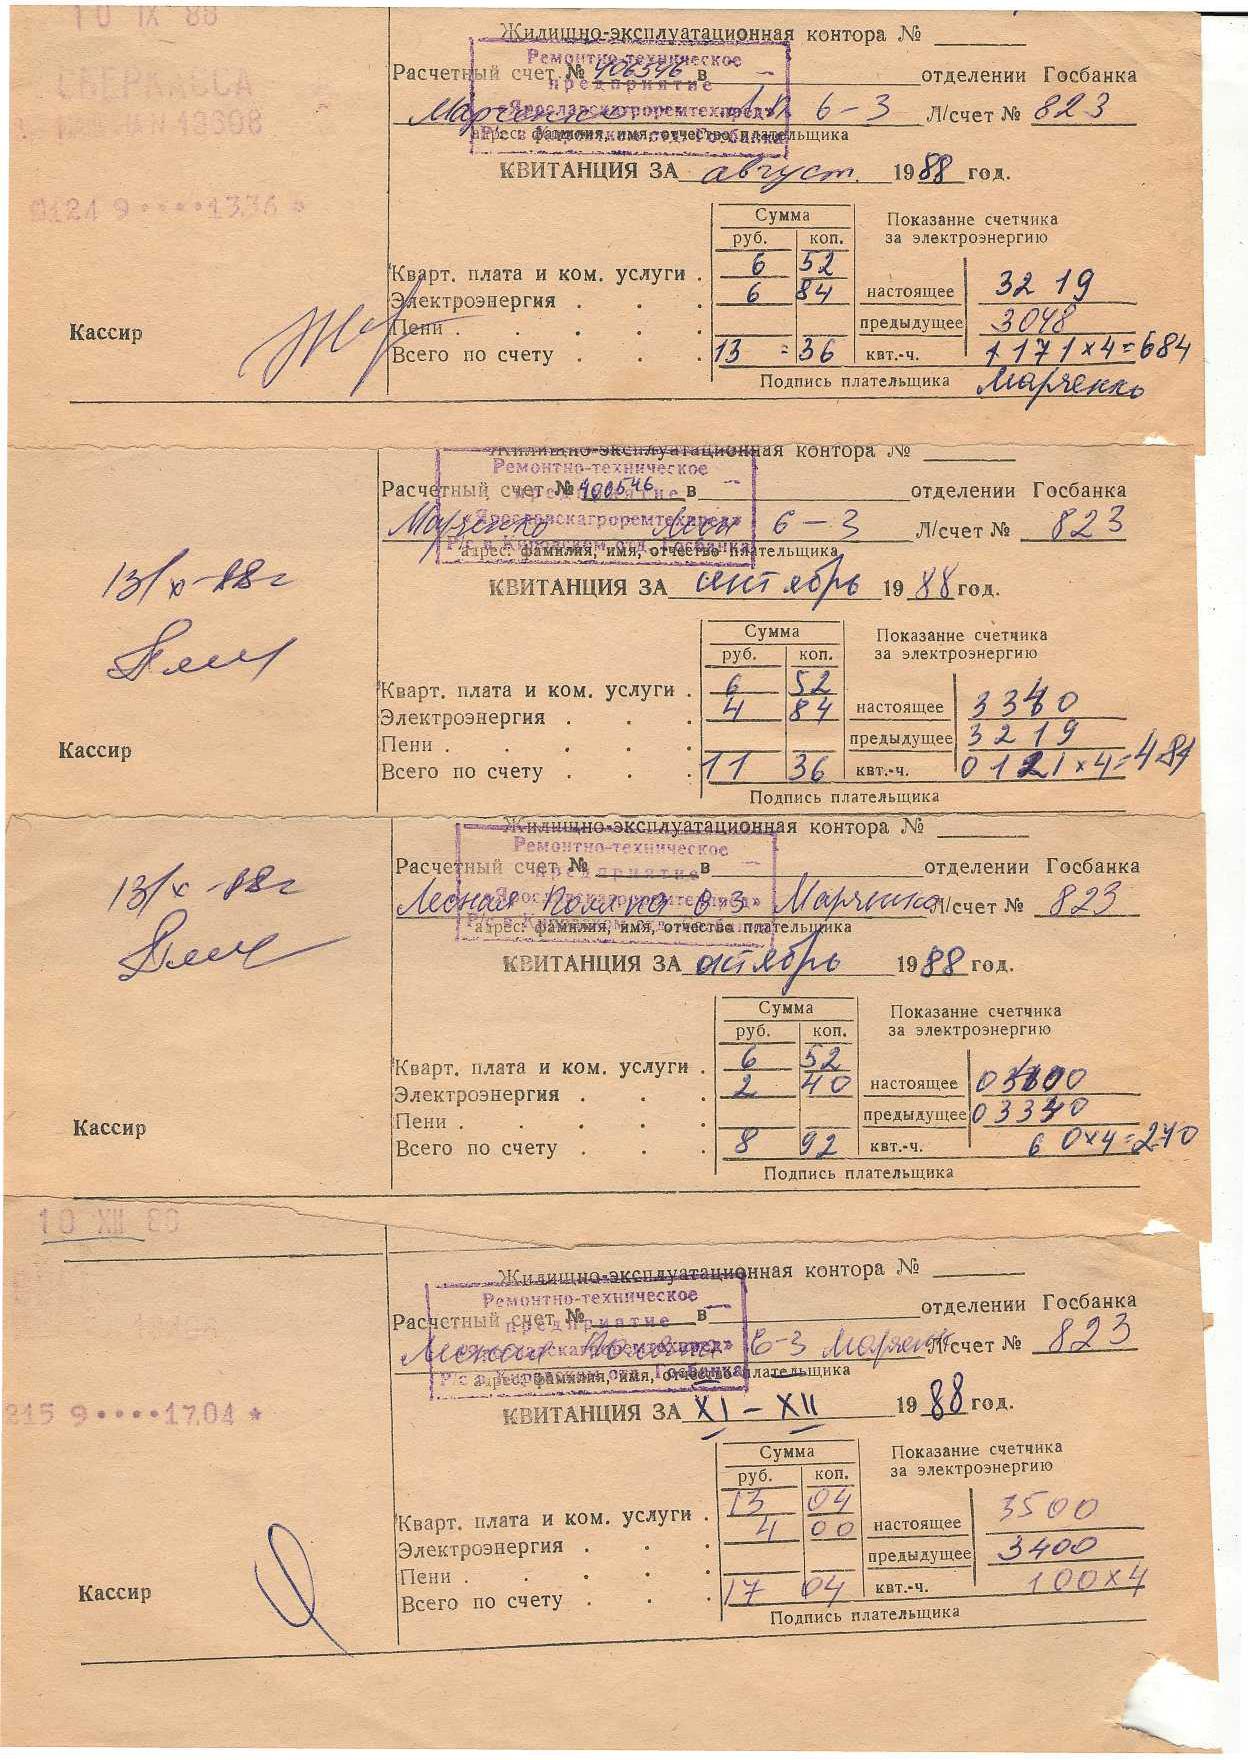 10 IX 88
Жилищно-эксплуатационная контора №
СБЕРКАССА
Ремонтно-техническое
предприятие
«Ярославскагроремтехпред»
Р/с в Кировском отд. Госбанка
Расчетный счет № 406546 в отделении Госбанка
Марченко 6-3 Л/счет № 823
адрес: фамилия, имя, отчество плательщика
КВИТАНЦИЯ ЗА август. 1988 год.
0124 9····13.36 *
Сумма Показание счетчика
руб. коп. за электроэнергию
Кварт. плата и ком. услуги . 6 52
Электроэнергия . . . 6 84 настоящее 3219
Пени . . . . . предыдущее 3048
Кассир
Всего по счету . . . 13 = 36 квт.-ч. 171×4=684
Подпись плательщика Марченко
Жилищно-эксплуатационная контора №
Ремонтно-техническое
предприятие
«Ярославскагроремтехпред»
Р/с в Кировском отд. Госбанка
Расчетный счет № в отделении Госбанка
Марченко 6-3 Л/счет № 823
адрес: фамилия, имя, отчество плательщика
13/X-88г
КВИТАНЦИЯ ЗА сентябрь 1988 год.
Сумма Показание счетчика
руб. коп. за электроэнергию
Кварт. плата и ком. услуги . 6 52
Электроэнергия . . . 4 84 настоящее 3340
Пени . . . . . предыдущее 3219
Кассир
Всего по счету . . . 11 36 квт.-ч. 0121×4=484
Подпись плательщика
Жилищно-эксплуатационная контора №
Ремонтно-техническое
предприятие
«Ярославскагроремтехпред»
Р/с в Кировском отд. Госбанка
Расчетный счет № в отделении Госбанка
13/X-88г
Лесная Поляна 6-3 Марченко Л/счет № 823
адрес: фамилия, имя, отчество плательщика
КВИТАНЦИЯ ЗА октябрь 1988 год.
Сумма Показание счетчика
руб. коп. за электроэнергию
Кварт. плата и ком. услуги . 6 52
Электроэнергия . . . 2 40 настоящее
Пени . . . . . предыдущее 03340
Кассир
Всего по счету . . . 8 92 квт.-ч. 60×4=240
Подпись плательщика
10 XII 88
Жилищно-эксплуатационная контора №
Ремонтно-техническое
предприятие
«Ярославскагроремтехпред»
Р/с в Кировском отд. Госбанка
Расчетный счет № в отделении Госбанка
Лесная Поляна 6-3 Марченко Л/счет № 823
адрес: фамилия, имя, отчество плательщика
КВИТАНЦИЯ ЗА XI - XII 1988 год.
215 9····17.04 *
Сумма Показание счетчика
руб. коп. за электроэнергию
Кварт. плата и ком. услуги . 13 04 3500
Электроэнергия . . . 4 00 настоящее
Пени . . . . . предыдущее 3400
Кассир
Всего по счету . . . 17 04 квт.-ч. 100×4
Подпись плательщика